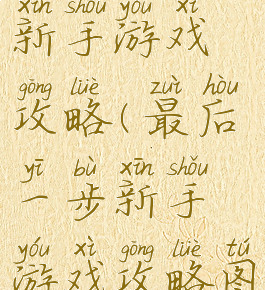 xīn shǒu yóu xì
新手游戏
gōng lüè zuì hòu
攻略(最后
yī bù xīn shǒu
一步新手
yóu xì gōng lüè tú
游戏攻略图